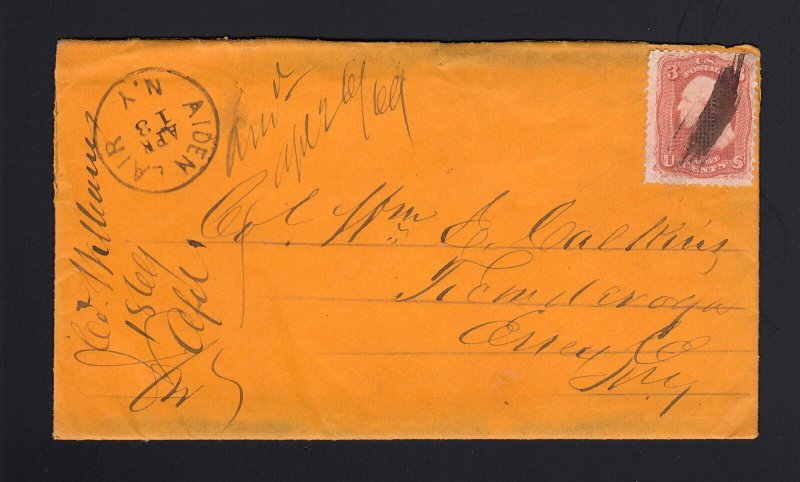 AIDEN LAIR
N.Y.
APR
13
Ansd
Apr 26/69
3
U.S.
POSTAGE
3
U
THREE
CENTS
S
Col. Wm E. Calkins
Ticonderoga
Essex Co
N.Y.
Williams
1869
Apl.